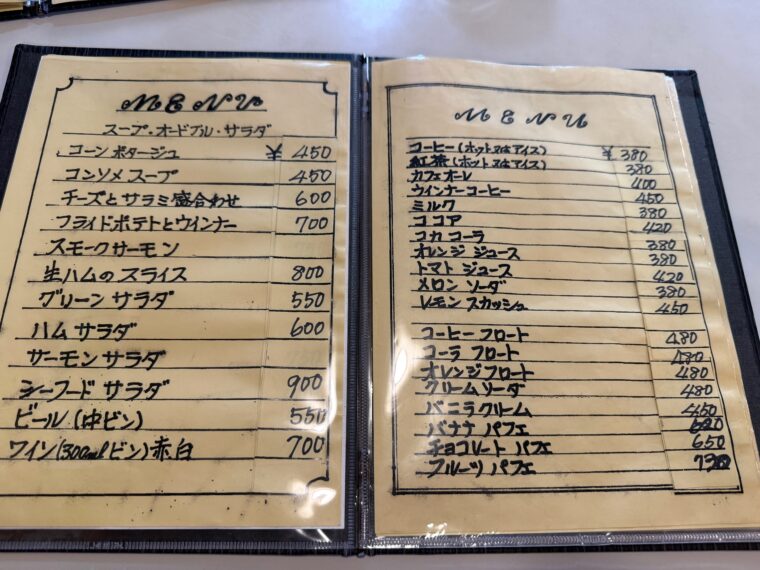 MENU
スープ・オードブル・サラダ
コーン ポタージュ ¥ 450
コンソメ スープ 450
チーズとサラミ盛合わせ 600
フライドポテトとウインナー 700
スモークサーモン
生ハムのスライス 800
グリーン サラダ 550
ハム サラダ 600
サーモン サラダ
シーフード サラダ 900
ビール (中ビン) 550
ワイン(300mlビン)赤.白 700
MENU
コーヒー(ホット又はアイス) ¥ 380
紅茶(ホット又はアイス) 380
カフェオーレ 400
ウインナーコーヒー 450
ミルク 380
ココア 420
コカ コーラ 380
オレンジ ジュース 380
トマト ジュース 420
メロン ソーダ 380
レモン スカッシュ 450
コーヒー フロート 480
コーラ フロート 480
オレンジフロート 480
クリームソーダ 480
バニラクリーム 450
バナナ パフェ
チョコレート パフェ 650
フルーツ パフェ